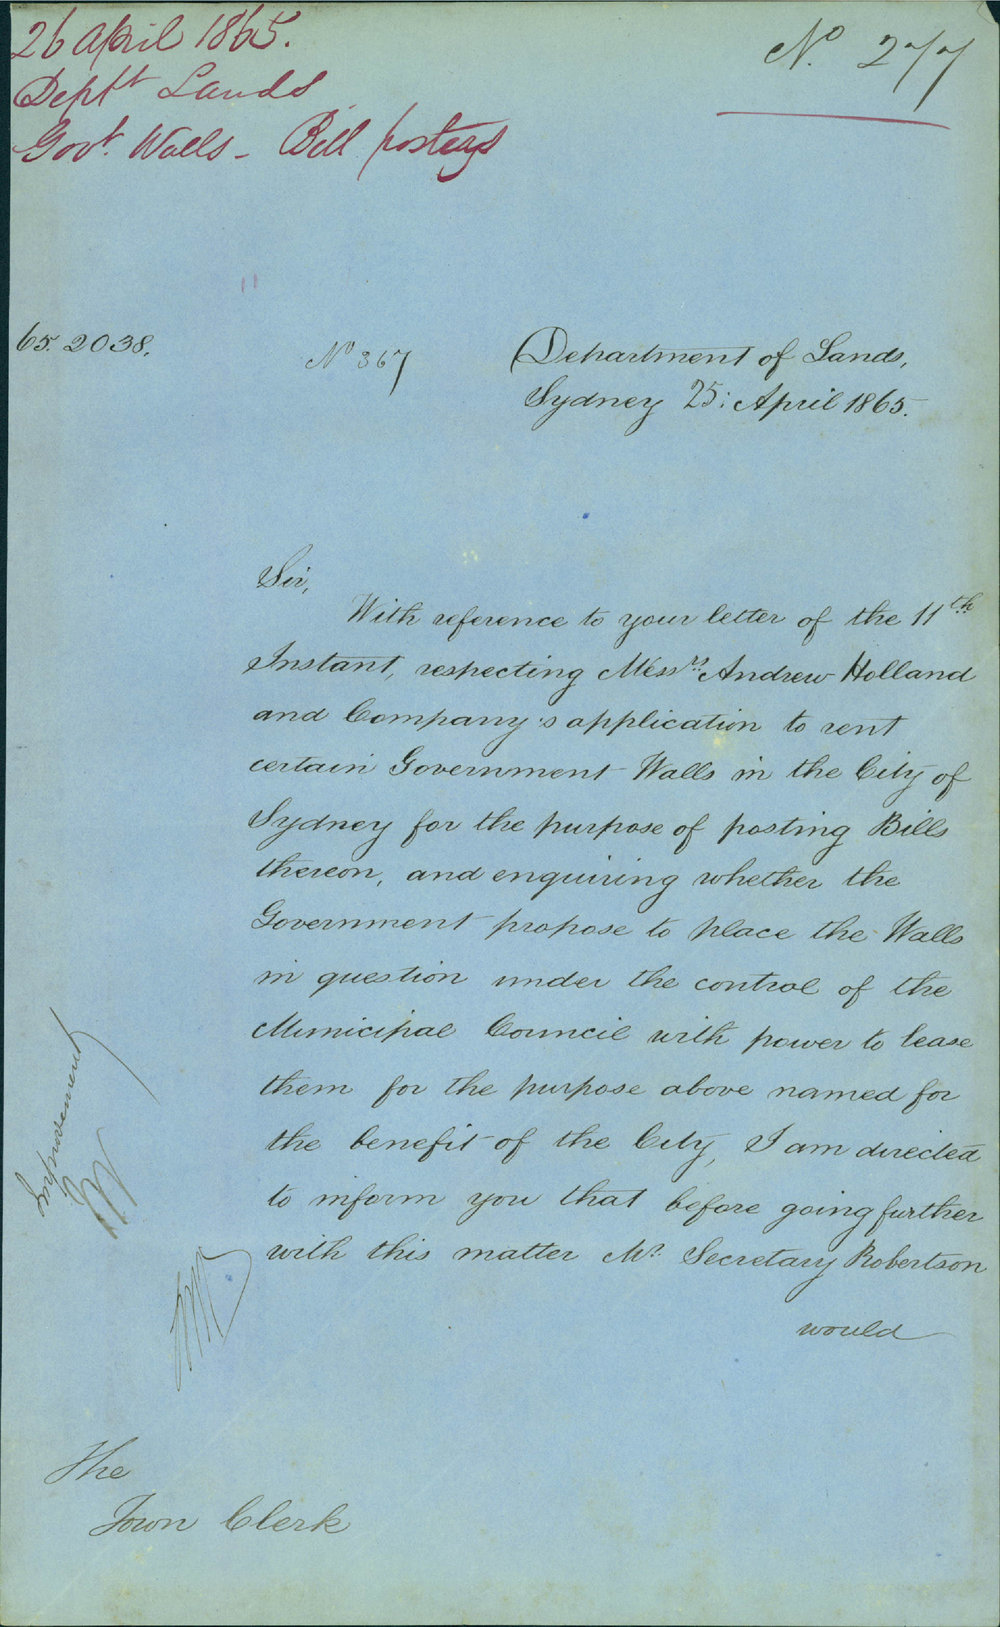 26 April 1865.
Deptt Lands
Govt. Walls - Bill posters
No. 277
65.2038.
No 367
Department of Lands,
Sydney 25: April 1865.
Sir,
With reference to your letter of the 11th
Instant, respecting Messrs. Andrew Holland
and Company's application to rent
certain Government Walls in the City of
Sydney for the purpose of posting Bills
thereon, and enquiring whether the
Government propose to place the Walls
in question under the control of the
Municipal Council with power to lease
them for the purpose above named for
the benefit of the City, I am directed
to inform you that before going further
with this matter Mr. Secretary Robertson
would
Improvement
The
Town Clerk